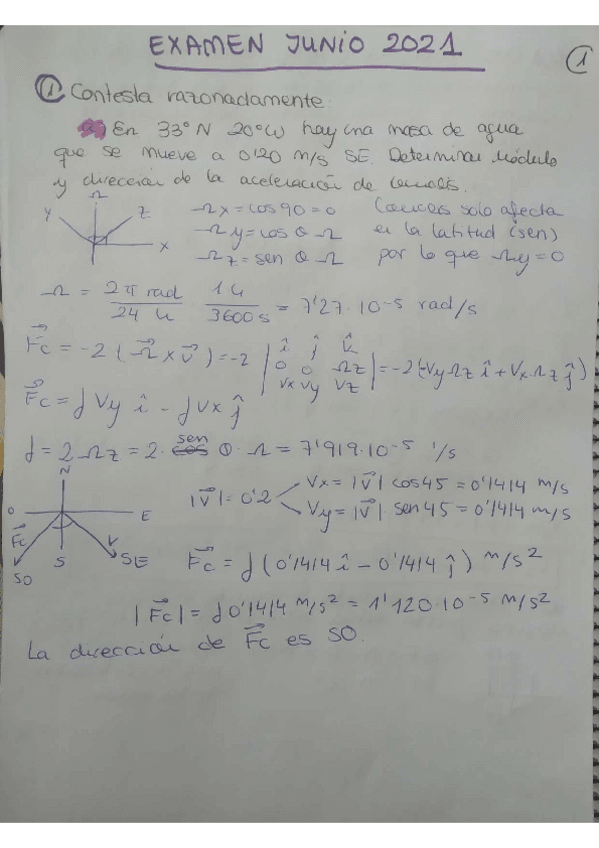 EXAMEN JUNIO 2021
1
① Contesta razonadamente.
a) En 33°N 20°W hay una masa de agua
que se mueve a 0'20 m/s SE. Determinar módulo
y dirección de la aceleración de Coriolis.
Ω
Y Z X
Ωx = cos 90 = 0
Ωy = cos θ Ω
Ωz = sen θ Ω
Coriolis solo afecta
en la latitud (sen)
por lo que Ωy = 0
Ω = 2π rad / 24 h · 1 h / 3600 s = 7'27 · 10⁻⁵ rad/s
F⃗c = -2 (Ω⃗ x v⃗) = -2 | î ĵ k̂ | 0 0 Ωz | Vx Vy Vz | = -2 (-Vy Ωz î + Vx Ωz ĵ)
F⃗c = f Vy î - f Vx ĵ
f = 2 Ωz = 2 · sen θ · Ω = 7'919 · 10⁻⁵ 1/s
N
O E
S
F⃗c
SO
V
SE
|v⃗| = 0'2
Vx = |v⃗| cos 45 = 0'1414 m/s
Vy = |v⃗| · sen 45 = 0'1414 m/s
F⃗c = f (0'1414 î - 0'1414 ĵ) m/s²
|F⃗c| = f 0'1414 m/s² = 1'120 · 10⁻⁵ m/s²
La dirección de F⃗c es SO.